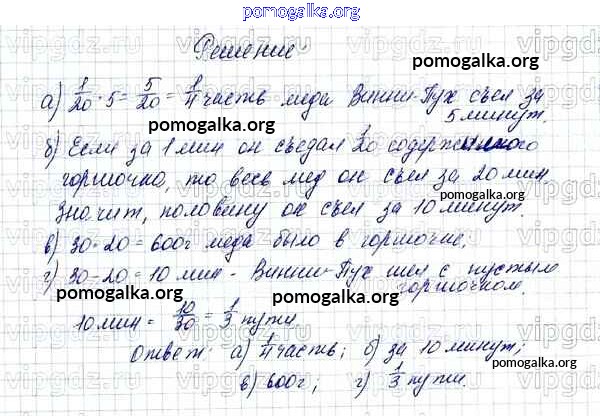 pomogalka.org
Решение
pomogalka.org
а) 1/20 · 5 = 5/20 = 1/4 часть меда Винни-Пух съел за
5 минут.
pomogalka.org
pomogalka.org
б) Если за 1 мин он съедал 1/20 содержимого
горшочка, то весь мед он съел за 20 мин
pomogalka.org
pomogalka.org
Значит, половину он съел за 10 минут.
в) 30 · 20 = 600г меда было в горшочке;
г) 30 - 20 = 10 мин - Винни-Пух шел с пустым
горшочком.
pomogalka.org
pomogalka.org
10 мин = 10/30 = 1/3 пути
pomogalka.org
Ответ: а) 1/4 часть; б) за 10 минут;
pomogalka.org
в) 600г; г) 1/3 пути.
pomogalka.org